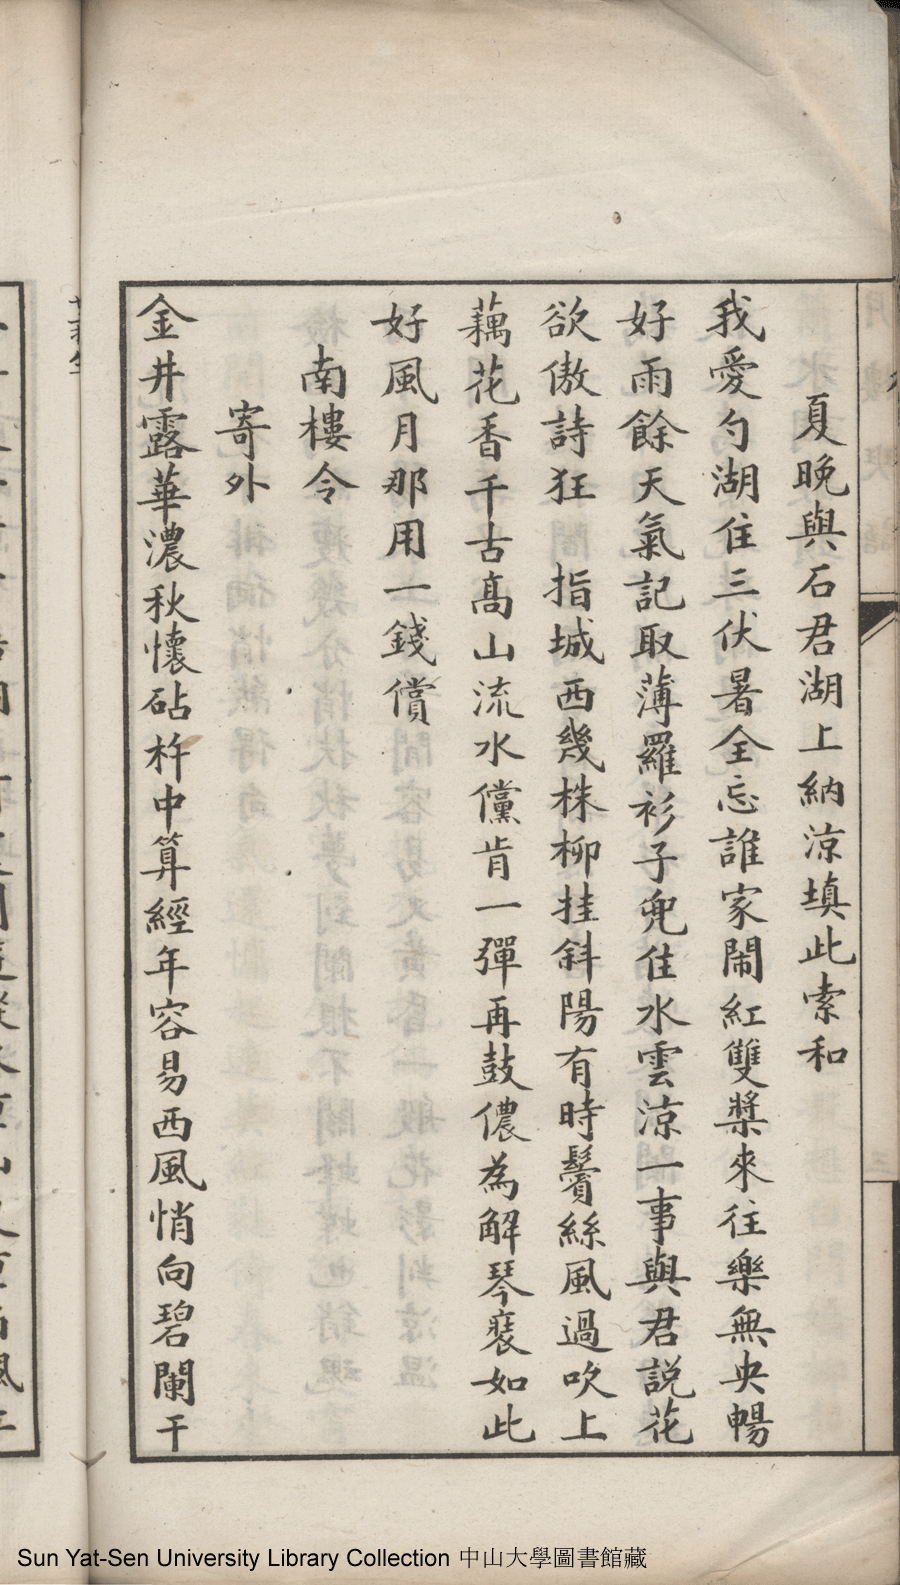 夏晚與石君湖上納涼填此索和
我愛勺湖住三伏暑全忘誰家鬧紅雙槳來往樂無央暢
好雨餘天氣記取薄羅衫子兜住水雲涼一事與君説花
欲傲詩狂　指城西幾株柳挂斜陽有時鬢絲風過吹上
藕花香千古高山流水儻肯一彈再鼓儂為解琴裦如此
好風月那用一錢償
南樓令
寄外
金井露華濃秋懷砧杵中算經年容易西風悄向碧闌干
Sun Yat-Sen University Library Collection 中山大學圖書館藏